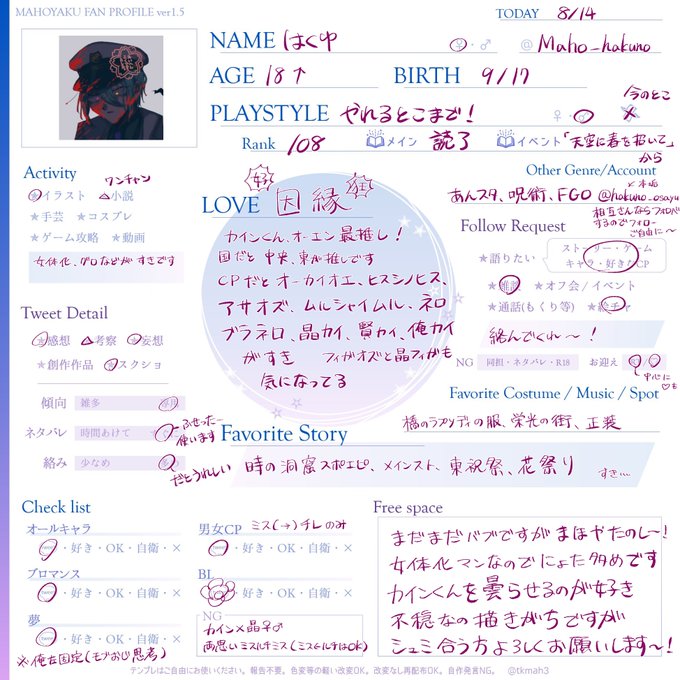 MAHOYAKU FAN PROFILE ver1.5
TODAY 8/14
NAME はくゆ ♀・♂ @ Maho_hakuno
AGE 18↑ BIRTH 9/17
PLAYSTYLE やれるとこまで! ♀・♂ 今のとこ
Rank 108 メイン 読了 イベント「天空に春を招いて」から
Activity ワンチャン
★イラスト △小説
★手芸 ★コスプレ
★ゲーム攻略 ★動画
女体化、グロなどがすきです
LOVE 因縁
カインくん、オーエン最推し!
国だと中央、東が推しです
CPだとオーカイオエ、ヒスシノヒス、
アサオズ、ムルシャイムル、ネロ
ブラネロ、晶カイ、賢カイ、俺カイ
がすき フィガオズと晶フィガも
気になってる
Other Genre/Account
あんスタ、呪術、FGO @hakuno_osayu
相互さんならフォロバ
するのでフォロー
ご自由に〜
Follow Request
★語りたい ストーリー・ゲーム
キャラ・好きなCP
★雑談 ★オフ会 / イベント
★通話(もくり等) ★絵チャ
絡んでくれ〜!
NG 同担・ネタバレ・R18 お迎え
中心に♡も
Tweet Detail
★感想 △考察 ★妄想
★創作作品 ★スクショ
傾向 雑多
ネタバレ 時間あけて
ふせったー使います
絡み 少なめ
だとうれしい
Favorite Costume / Music / Spot
橋のラプソディの服、栄光の街、正装
Favorite Story
時の洞窟スポエピ、メインスト、東祝祭、花祭り すき…
Check list
オールキャラ
・好き・OK・自衛・×
ブロマンス
・好き・OK・自衛・×
夢
・好き・OK・自衛・×
※俺左固定(モブおじ思考)
男女CP ミス(→)チレのみ
・好き・OK・自衛・×
BL
・好き・OK・自衛・×
NG
カイン×晶子♂
両思いミスルチミス(ミス←ルチはOK)
Free space
まだまだバブですがまほやくたのし〜!
女体化マンなのでにょた多めです
カインくんを曇らせるのが好き
不穏なの描きがちですが
シュミ合う方よろしくお願いします〜!
テンプレはご自由にお使いください。報告不要。色変等の軽い改変OK。改変なし再配布OK。自作発言NG。 @tkmah3